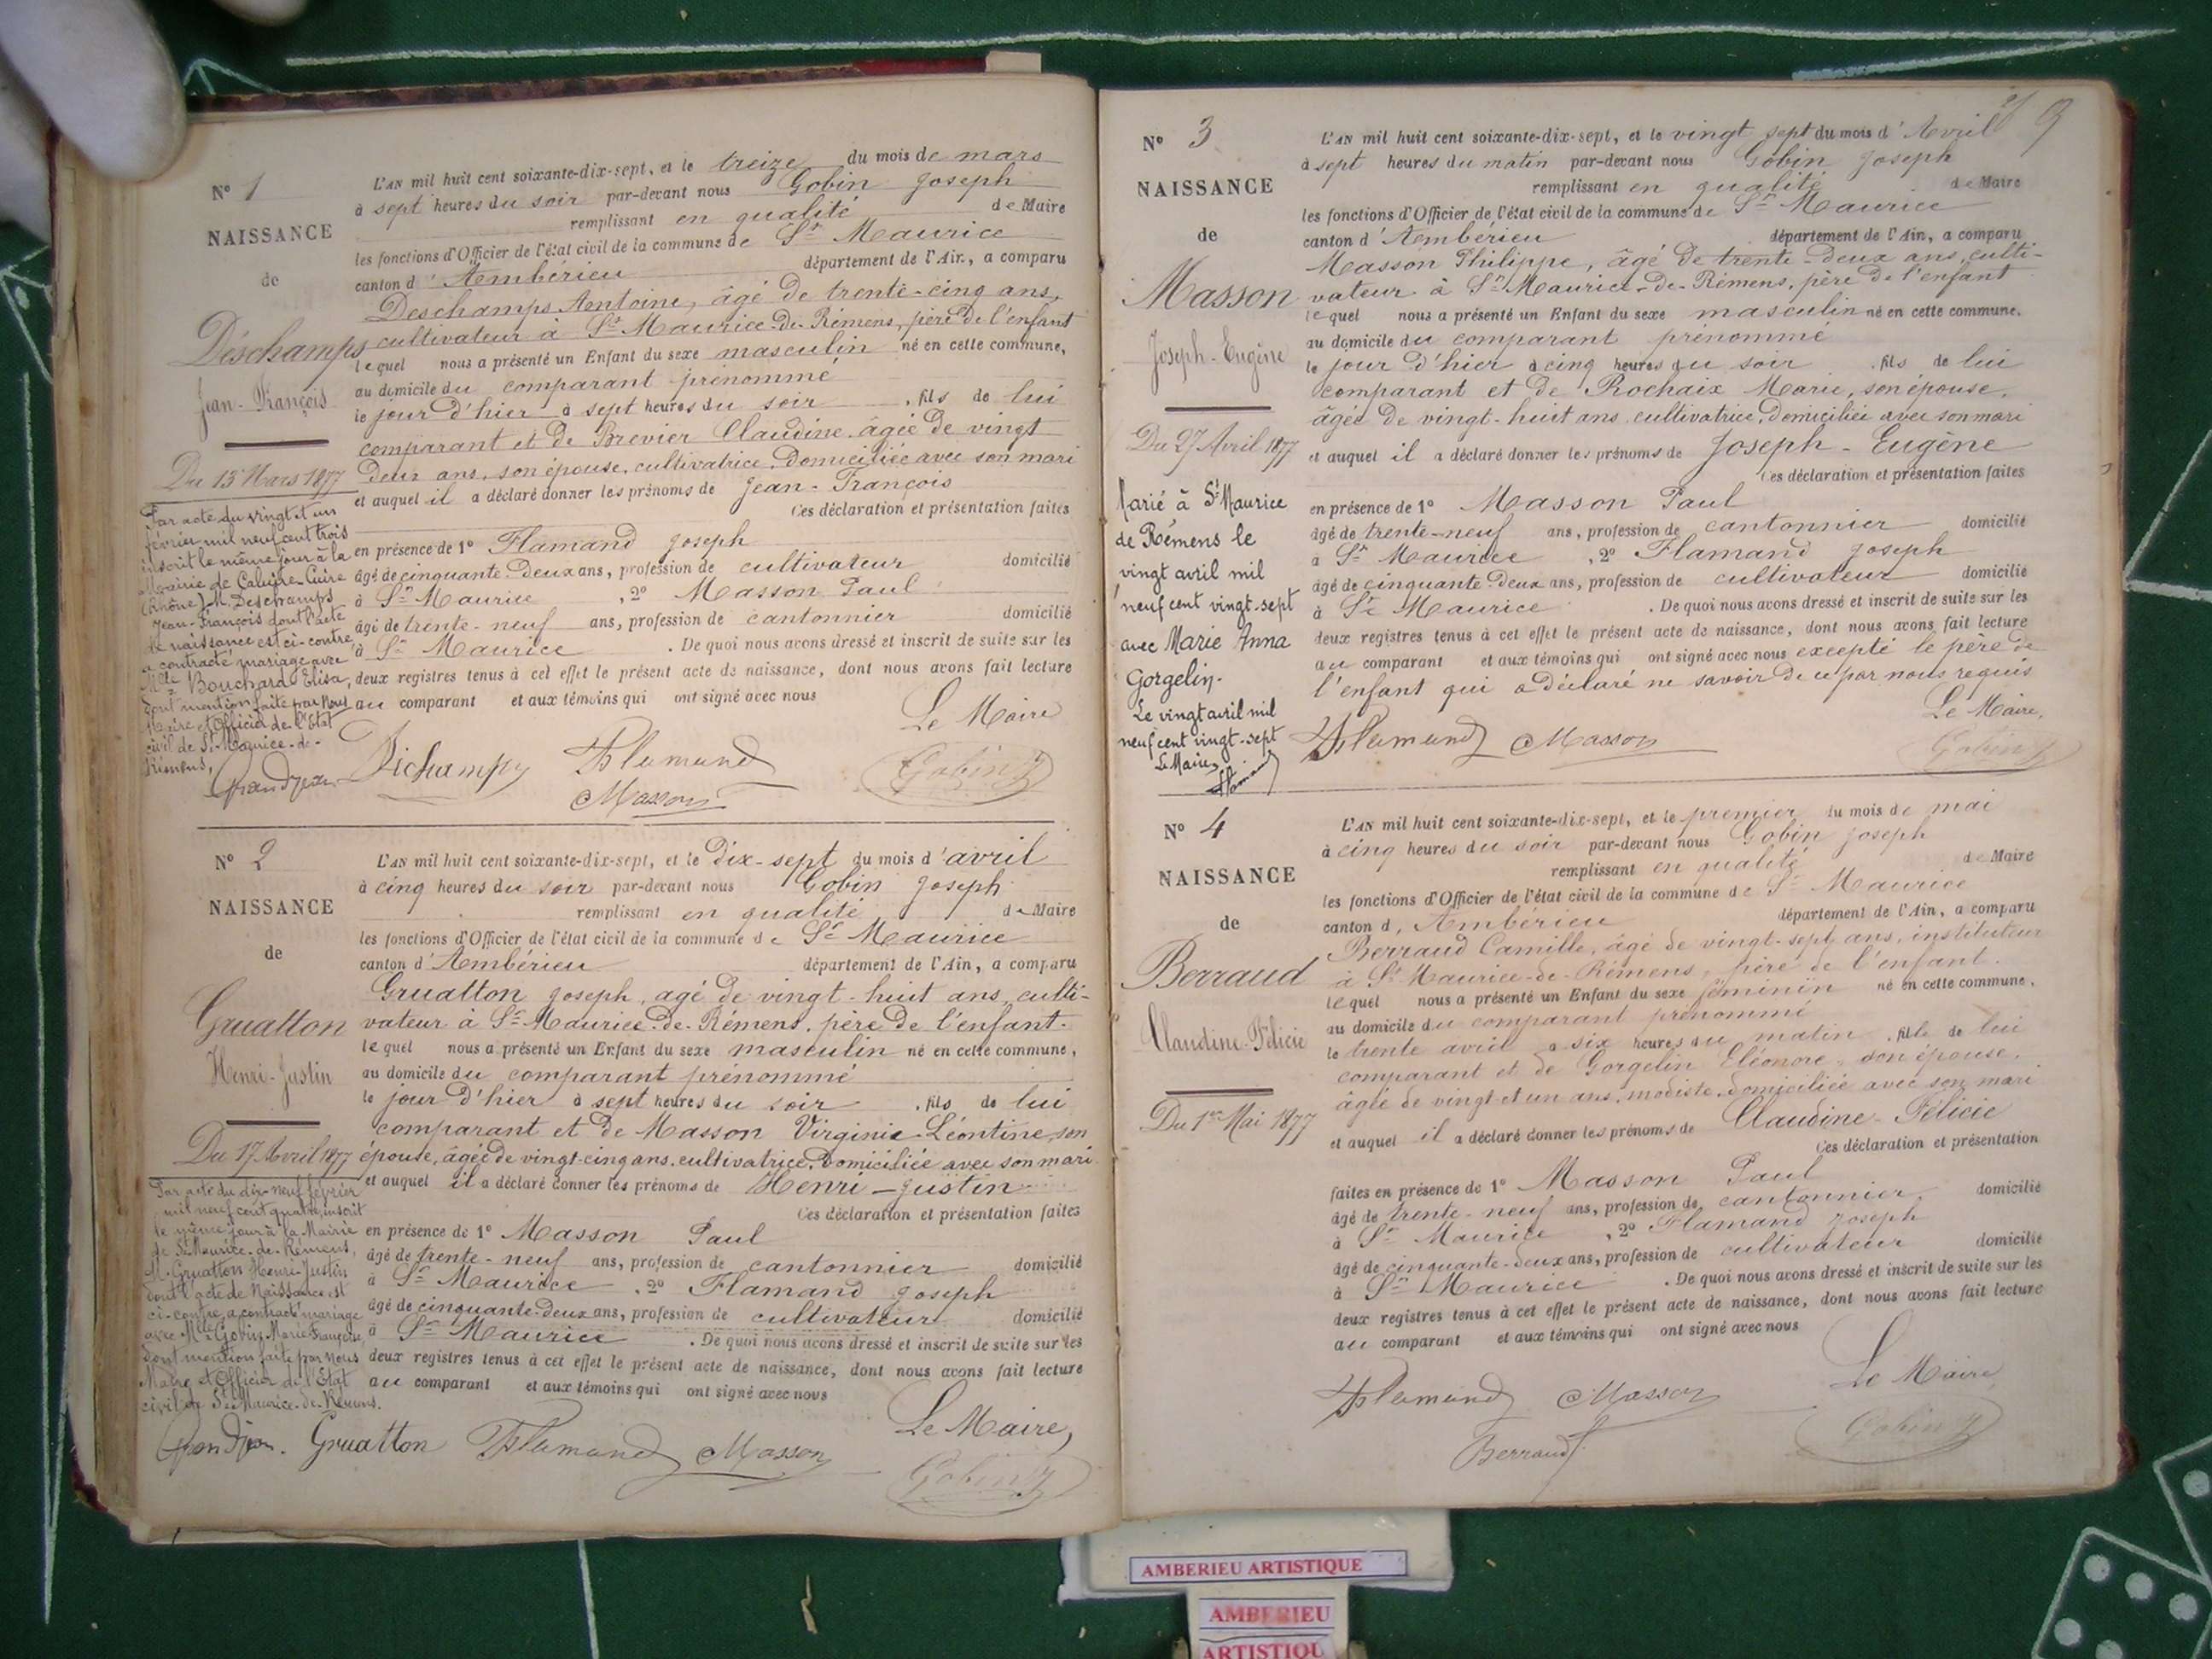 N° 1
NAISSANCE
de
Déschamps
Jean-François
Du 13 Mars 1877
Par acte du vingt et un
février mil neuf cent trois
inscrit le même jour à la
Mairie de Caluire-Cuire
(Rhône) M. Deschamps
Jean-François dont l'acte
de naissance est ci-contre
a contracté mariage avec
Mlle Bouchard Elisa,
dont mention faite par Nous
Maire et Officier de l'Etat
civil de St Maurice-de-
Rémens,
Grandjean
L'AN mil huit cent soixante-dix-sept, et le treize du mois de mars
à sept heures du soir par-devant nous Gobin Joseph
remplissant en qualité de Maire
les fonctions d'Officier de l'état civil de la commune de St Maurice
canton d'Ambérieu département de l'Ain, a comparu
Deschamps Antoine, âgé de trente-cinq ans,
cultivateur à St Maurice-de-Rémens, père de l'enfant
lequel nous a présenté un Enfant du sexe masculin né en cette commune,
au domicile du comparant prénommé
le jour d'hier à sept heures du soir, fils de lui
comparant et de Brevier Claudine âgée de vingt
deux ans, son épouse, cultivatrice, domiciliée avec son mari
et auquel il a déclaré donner les prénoms de Jean-François
Ces déclaration et présentation faites
en présence de 1° Flamand Joseph
âgé de cinquante-deux ans, profession de cultivateur domicilié
à St Maurice, 2° Masson Paul
âgé de trente-neuf ans, profession de cantonnier domicilié
à St Maurice. De quoi nous avons dressé et inscrit de suite sur les
deux registres tenus à cet effet le présent acte de naissance, dont nous avons fait lecture
au comparant et aux témoins qui ont signé avec nous
Le Maire
Dichamps Flamand Gobin J
Masson
N° 2
NAISSANCE
de
Gruatton
Henri-Justin
Du 17 Avril 1877
Par acte du dix-neuf février
mil neuf cent quatre, inscrit
le même jour à la Mairie
de St Maurice-de-Rémens,
M. Gruatton Henri-Justin
dont l'acte de Naissance est
ci-contre, a contracté mariage
avec Mlle Gobin Marie-Françoise,
dont mention faite par Nous
Maire et Officier de l'Etat
civil de St Maurice-de-Rémens.
Grandjean.
L'AN mil huit cent soixante-dix-sept, et le dix-sept du mois d'avril
à cinq heures du soir par-devant nous Gobin Joseph
remplissant en qualité de Maire
les fonctions d'Officier de l'état civil de la commune de St Maurice
canton d'Ambérieu département de l'Ain, a comparu
Gruatton Joseph, agé de vingt-huit ans, culti-
vateur à St Maurice-de-Rémens, père de l'enfant.
lequel nous a présenté un Enfant du sexe masculin né en cette commune,
au domicile du comparant prénommé
le jour d'hier à sept heures du soir, fils de lui
comparant et de Masson Virginie-Léontine, son
épouse, âgée de vingt-cinq ans, cultivatrice, domiciliée avec son mari
et auquel il a déclaré donner les prénoms de Henri-Justin
Ces déclaration et présentation faites
en présence de 1° Masson Paul
âgé de trente-neuf ans, profession de cantonnier domicilié
à St Maurice, 2° Flamand Joseph
âgé de cinquante-deux ans, profession de cultivateur domicilié
à St Maurice. De quoi nous avons dressé et inscrit de suite sur les
deux registres tenus à cet effet le présent acte de naissance, dont nous avons fait lecture
au comparant et aux témoins qui ont signé avec nous
Le Maire,
Gruatton Flamand Masson
Gobin J
9
N° 3
NAISSANCE
de
Masson
Joseph-Eugène
Du 27 Avril 1877
Marié à St Maurice
de Rémens le
vingt avril mil
neuf cent vingt-sept
avec Marie Anna
Gorgelin.
Le vingt avril mil
neuf cent vingt-sept
Le Maire,
L'AN mil huit cent soixante-dix-sept, et le vingt sept du mois d'Avril
à sept heures du matin par-devant nous Gobin Joseph
remplissant en qualité de Maire
les fonctions d'Officier de l'état civil de la commune de St Maurice
canton d'Ambérieu département de l'Ain, a comparu
Masson Philippe, âgé de trente-deux ans, culti-
vateur à St Maurice-de-Rémens, père de l'enfant
lequel nous a présenté un Enfant du sexe masculin né en cette commune.
au domicile du comparant prénommé
le jour d'hier à cinq heures du soir, fils de lui
comparant et de Rochaix Marie, son épouse,
âgée de vingt-huit ans, cultivatrice, domiciliée avec son mari
et auquel il a déclaré donner les prénoms de Joseph-Eugène
Ces déclaration et présentation faites
en présence de 1° Masson Paul
âgé de trente-neuf ans, profession de cantonnier domicilié
à St Maurice, 2° Flamand Joseph
âgé de cinquante-deux ans, profession de cultivateur domicilié
à St Maurice. De quoi nous avons dressé et inscrit de suite sur les
deux registres tenus à cet effet le présent acte de naissance, dont nous avons fait lecture
au comparant et aux témoins qui ont signé avec nous excepté le père de
l'enfant qui a déclaré ne savoir de ce par nous requis
Le Maire,
Flamand Masson Gobin J
N° 4
NAISSANCE
de
Berraud
Claudine-Félicie
Du 1er Mai 1877
L'AN mil huit cent soixante-dix-sept, et le premier du mois de mai
à cinq heures du soir par-devant nous Gobin Joseph
remplissant en qualité de Maire
les fonctions d'Officier de l'état civil de la commune de St Maurice
canton d'Ambérieu département de l'Ain, a comparu
Berraud Camille, âgé de vingt-sept ans, instituteur
à St Maurice-de-Rémens, père de l'enfant.
lequel nous a présenté un Enfant du sexe féminin né en cette commune.
au domicile du comparant prénommé
le trente avril a six heures du matin, fille de lui
comparant et de Gorgelin Eléonore, son épouse,
âgée de vingt et un ans, modiste, domiciliée avec son mari
et auquel il a déclaré donner les prénoms de Claudine-Félicie
Ces déclaration et présentation
faites en présence de 1° Masson Paul
âgé de trente-neuf ans, profession de cantonnier, domicilié
à St Maurice, 2° Flamand Joseph
âgé de cinquante-deux ans, profession de cultivateur domicilié
à St Maurice. De quoi nous avons dressé et inscrit de suite sur les
deux registres tenus à cet effet le présent acte de naissance, dont nous avons fait lecture
au comparant et aux témoins qui ont signé avec nous
Le Maire
Flamand Masson
Berraud Gobin J
AMBERIEU ARTISTIQUE
AMBERIEU
ARTISTIQU